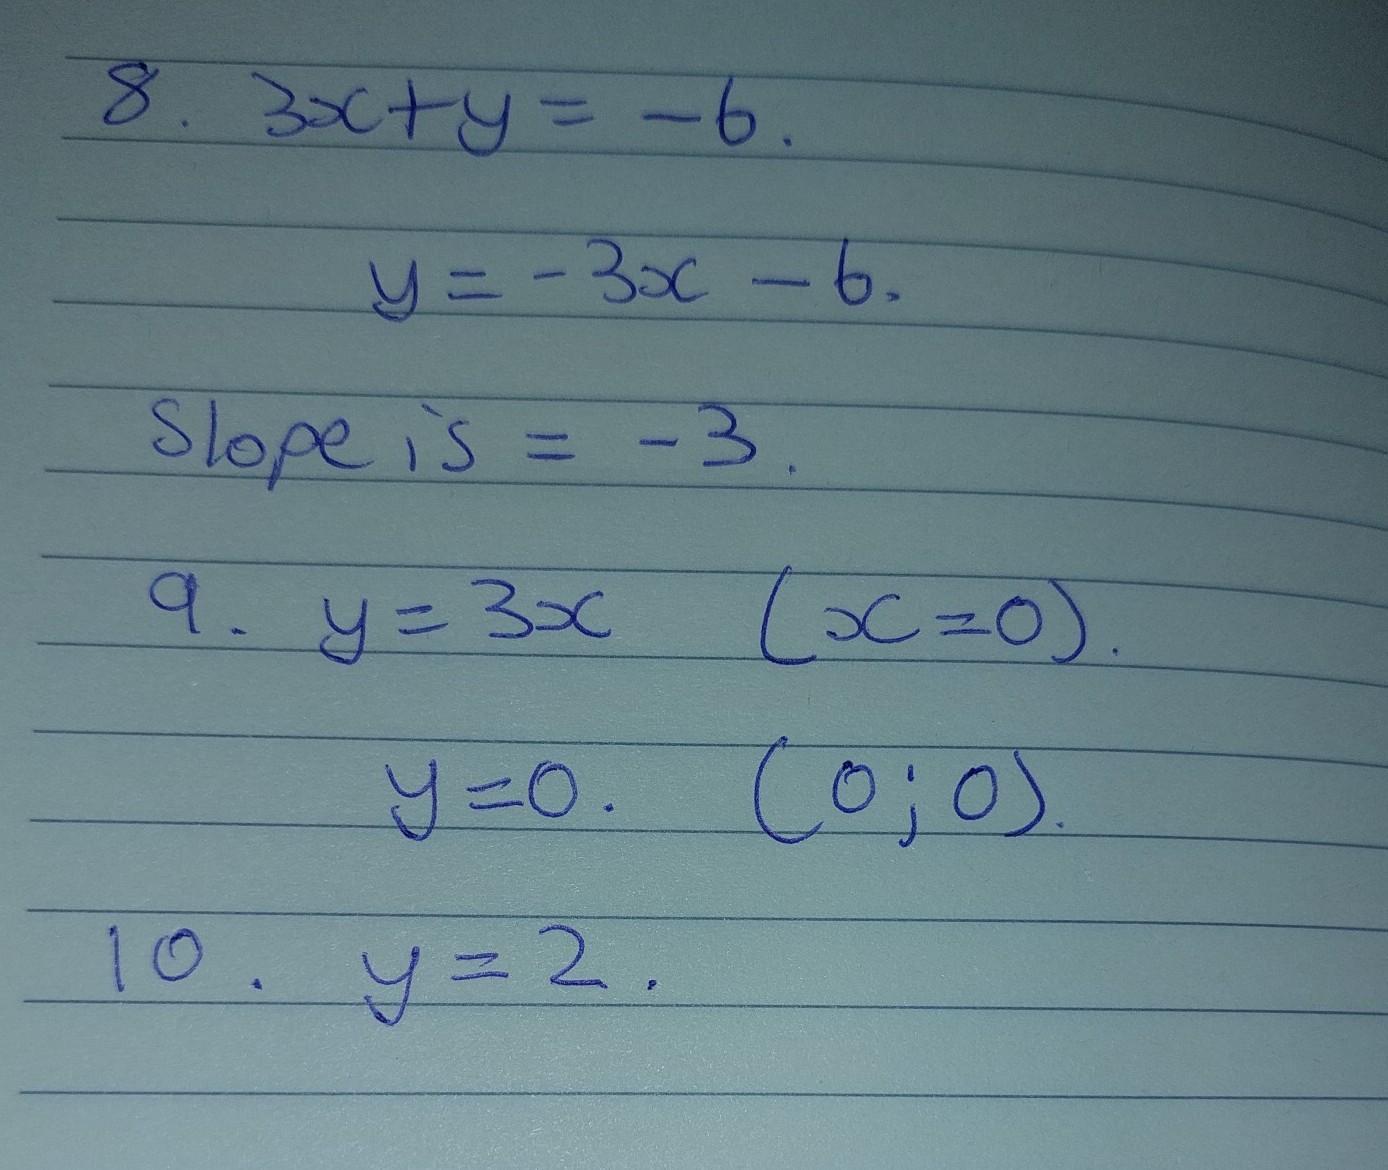 8. 3x+y = -6.
y = -3x - 6.
Slope is = -3.
9. y = 3x (x=0).
y=0. (0;0).
10. y = 2.